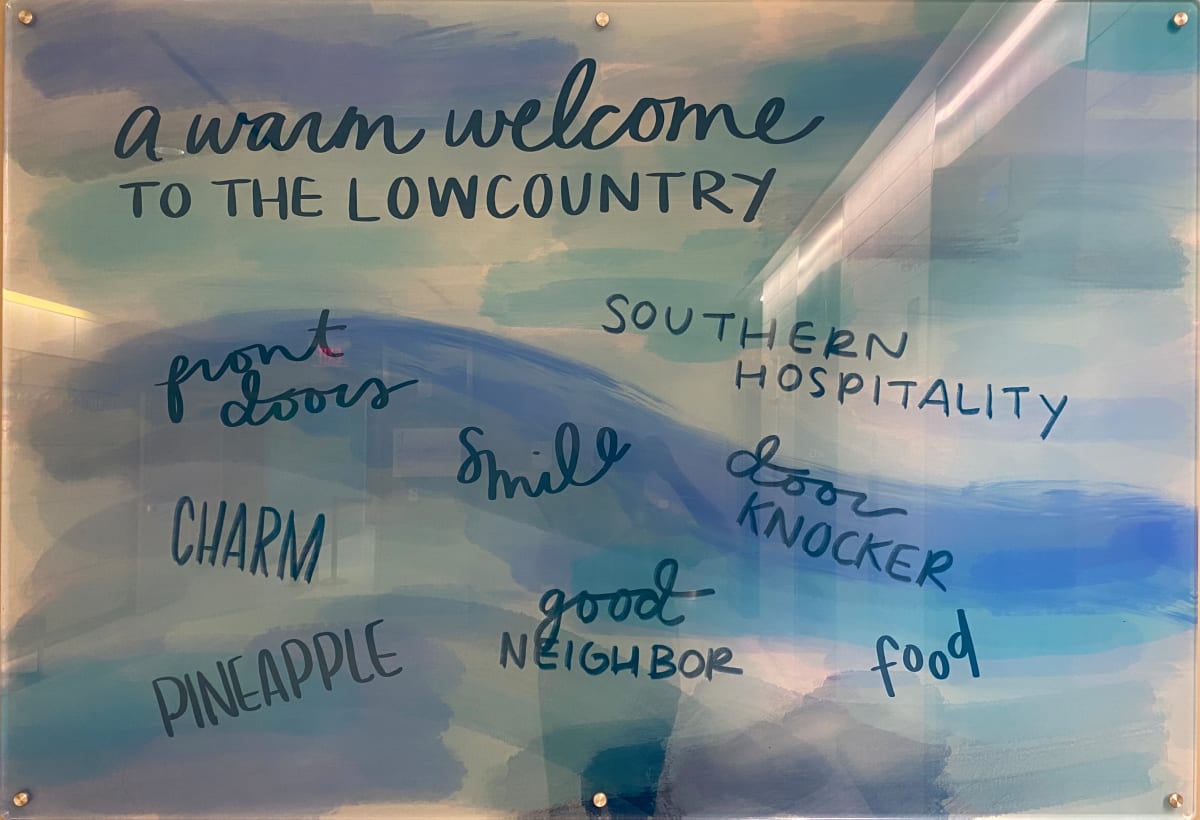 a warm welcome
TO THE LOWCOUNTRY
front
doors
SOUTHERN
HOSPITALITY
smile
door
KNOCKER
CHARM
good
NEIGHBOR
PINEAPPLE
food